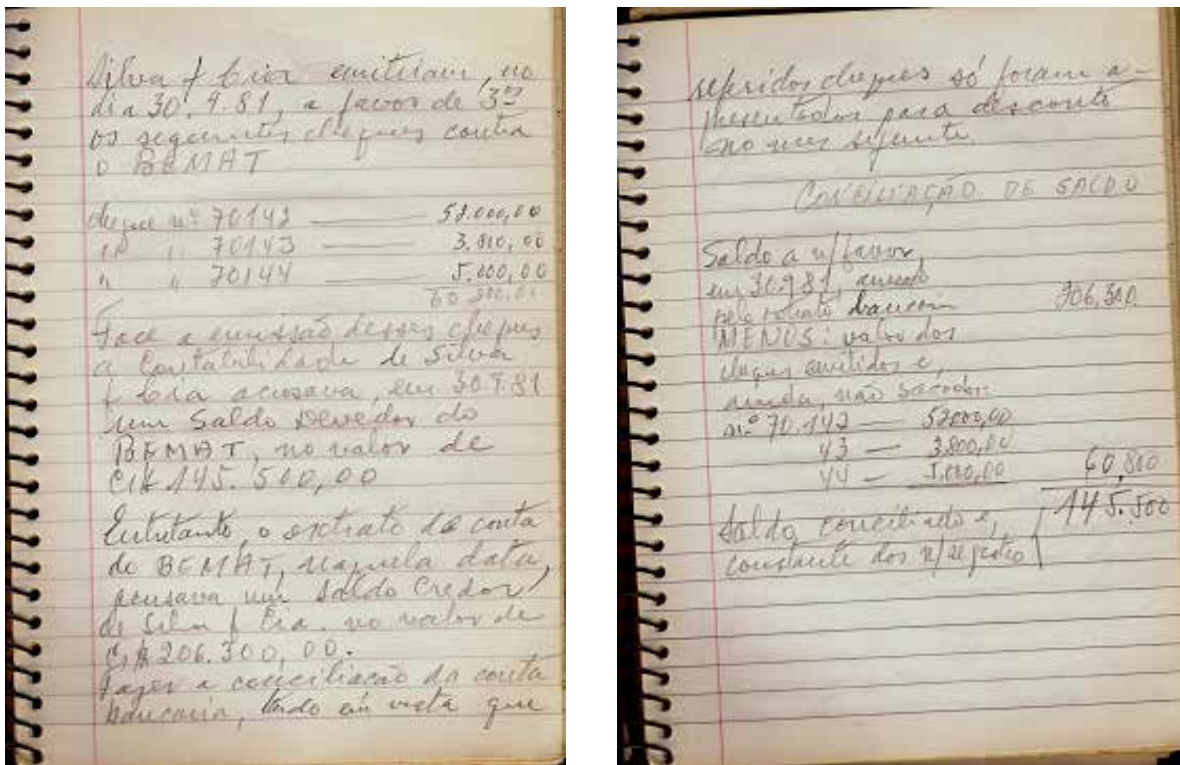 Silva & Cia emitiram, no
dia 30.9.81, a favor de 3os
os seguintes cheques contra
o BEMAT
cheque nº 70142 — 52.000,00
" " 70143 — 3.800,00
" " 70144 — 5.000,00
60.800,00
Face a emissão desses cheques
a Contabilidade de Silva
& Cia acusava, em 30.9.81
um Saldo Devedor do
BEMAT, no valor de
Cr$ 145.500,00
Entretanto, o extrato de conta
de BEMAT, naquela data,
acusava um saldo Credor,
de Silva & Cia. no valor de
Cr$ 206.300,00.
Fazer a conciliação da conta
bancaria, tendo em vista que
referidos cheques só foram a-
presentados para desconto
no mes seguinte.
CONCILIAÇÃO DE SALDO
Saldo a n/favor,
em 30.9.81, acusado
pelo extrato bancario 206,300
MENOS: valor dos
cheques emitidos e,
ainda, não sacados:
nº 70.142 — 52000,00
43 — 3.800,00
44 — 5.000,00 60,800
Saldo conciliado e, 145.500
constante dos n/registro